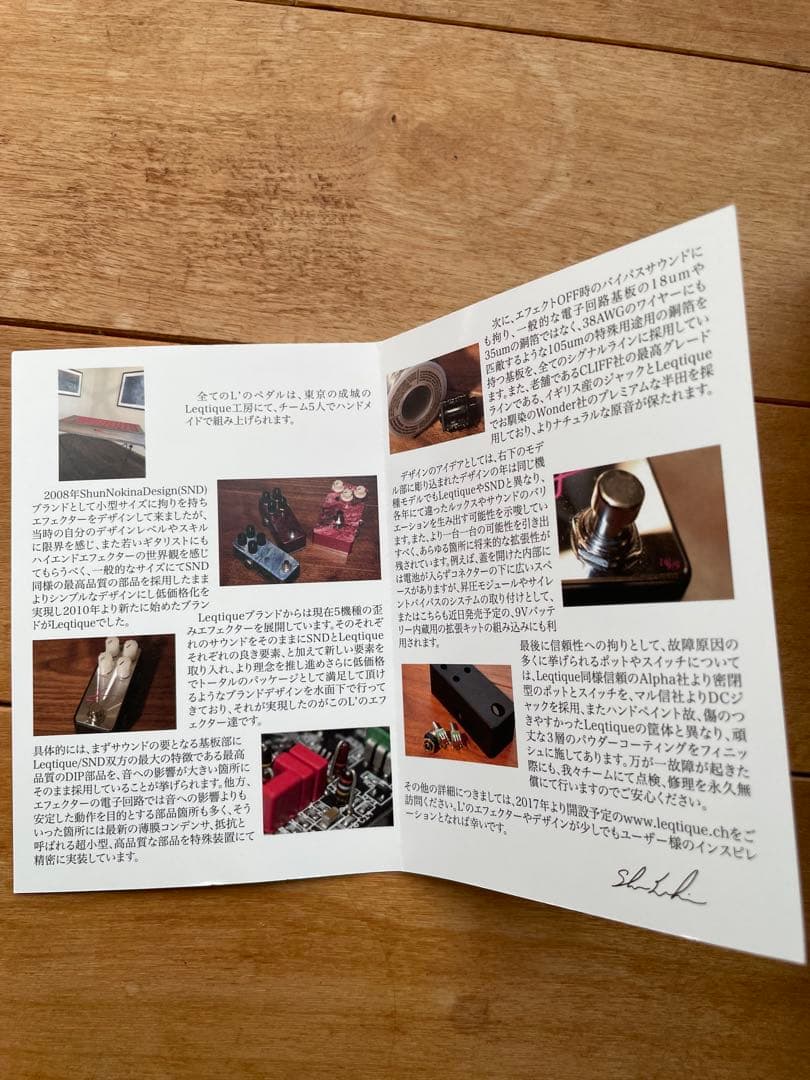 全てのL'のペダルは、東京の成城の
Leqtique工房にて、チーム5人でハンドメ
イドで組み上げられます。
2008年ShunNokinaDesign(SND)
ブランドとして小型サイズに拘りを持ち
エフェクターをデザインして来ましたが、
当時の自分のデザインレベルやスキル
に限界を感じ、また若いギタリストにも
ハイエンドエフェクターの世界観を感じ
てもらうべく、一般的なサイズにてSND
同様の最高品質の部品を採用したまま
よりシンプルなデザインにし低価格化を
実現し2010年より新たに始めたブラン
ドがLeqtiqueでした。
Leqtiqueブランドからは現在5機種の歪
みエフェクターを展開しています。そのそれぞ
れのサウンドをそのままにSNDとLeqtique
それぞれの良き要素、と加えて新しい要素を
取り入れ、より理念を推し進めさらに低価格
でトータルのパッケージとして満足して頂け
るようなブランドデザインを水面下で行って
きており、それが実現したのがこのL'のエフ
ェクター達です。
具体的には、まずサウンドの要となる基板部に
Leqtique/SND双方の最大の特徴である最高
品質のDIP部品を、音への影響が大きい箇所に
そのまま採用していることが挙げられます。他方、
エフェクターの電子回路では音への影響よりも
安定した動作を目的とする部品箇所も多く、そう
いった箇所には最新の薄膜コンデンサ、抵抗と
呼ばれる超小型、高品質な部品を特殊装置にて
精密に実装しています。
次に、エフェクトOFF時のバイパスサウンドに
も拘り、一般的な電子回路基板の18umや
35umの銅箔ではなく、38AWGのワイヤーにも
匹敵するような105umの特殊用途用の銅箔を
持つ基板を、全てのシグナルラインに採用してい
ます。また、老舗であるCLIFF社の最高グレード
ラインである、イギリス産のジャックとLeqtique
でお馴染のWonder社のプレミアムな半田を採
用しており、よりナチュラルな原音が保たれます。
デザインのアイデアとしては、右下のモデ
ル部に彫り込まれたデザインの年は同じ機
種モデルでもLeqtiqueやSNDと異なり、
各年にて違ったルックスやサウンドのバリ
エーションを生み出す可能性を示唆してい
ます。また、より一台一台の可能性を引き出
すべく、あらゆる箇所に将来的な拡張性が
残されています。例えば、蓋を開けた内部に
は電池が入らずコネクターの下に広いスペ
ースがありますが、昇圧モジュールやサイレ
ントバイパスのシステムの取り付けとして、
またはこちらも近日発売予定の、9Vバッテ
リー内蔵用の拡張キットの組み込みにも利
用されます。
最後に信頼性への拘りとして、故障原因の
多くに挙げられるポットやスイッチについて
は、Leqtique同様信頼のAlpha社より密閉
型のポットとスイッチを、マル信社よりDCジ
ャックを採用、またハンドペイント故、傷のつ
きやすかったLeqtiqueの筐体と異なり、頑
丈な3層のパウダーコーティングをフィニッ
シュに施してあります。万が一故障が起きた
際にも、我々チームにて点検、修理を永久無
償にて行いますのでご安心ください。
その他の詳細につきましては、2017年より開設予定のwww.leqtique.chをご
訪問ください。L'のエフェクターやデザインが少しでもユーザー様のインスピレ
ーションとなれば幸いです。